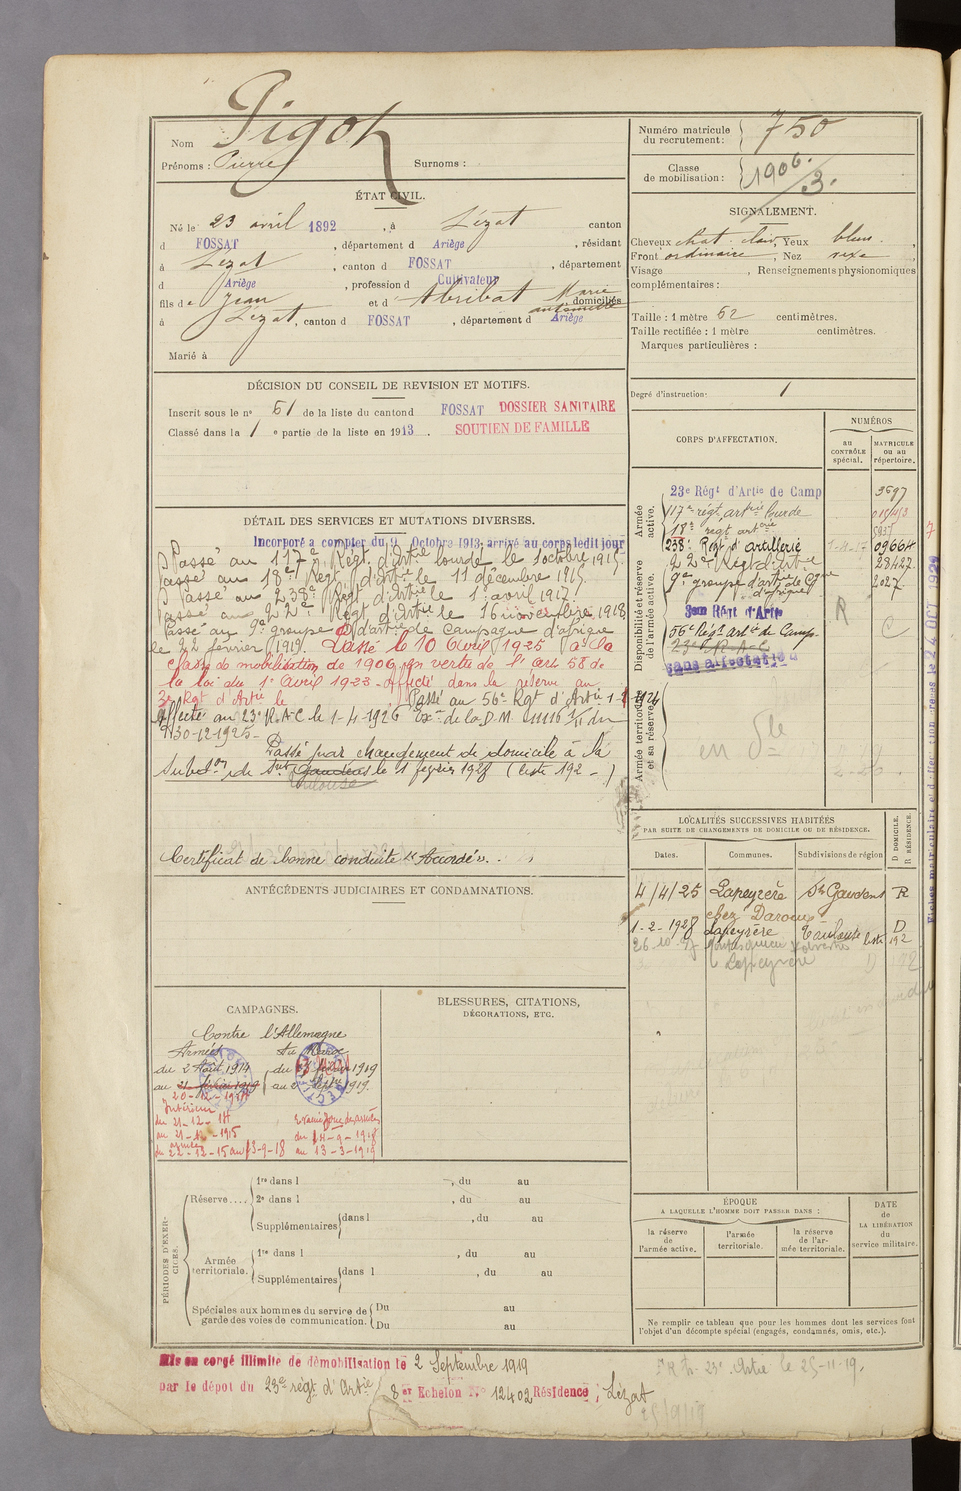 Nom Pigot
Prénoms : Pierre Surnoms :
Numéro matricule du recrutement : 750
Classe de mobilisation : 1906/3.
ÉTAT CIVIL.
Né le 23 avril 1892, à Lézat canton
d FOSSAT, département d Ariège, résidant
à Lézat, canton d FOSSAT, département
d Ariège, profession d Cultivateur
fils de Jean et d Abribat Marie
domiciliés
à Lézat, canton d FOSSAT, département d Ariège
Marié à
SIGNALEMENT.
Cheveux chat. clair, Yeux bleus,
Front ordinaire, Nez
Visage , Renseignements physionomiques
complémentaires :
Taille : 1 mètre 62 centimètres.
Taille rectifiée : 1 mètre centimètres.
Marques particulières :
Degré d'instruction : 1
DÉCISION DU CONSEIL DE REVISION ET MOTIFS.
Inscrit sous le n° 51 de la liste du canton d FOSSAT DOSSIER SANITAIRE
Classé dans la 1 e partie de la liste en 1913. SOUTIEN DE FAMILLE
DÉTAIL DES SERVICES ET MUTATIONS DIVERSES.
Incorporé a compter du 9 Octobre 1913, arrivé au corps ledit jour
Passé au 117e Régt d'Artie lourde le 1 octobre 1915
Passé au 18e Régt d'Artie le 11 décembre 1915.
Passé au 238e Régt d'Artie le 1er avril 1917.
Passé au 22e Régt d'Artie le 16 novembre 1918
Passé au 9e groupe d'artie de Campagne d'afrique
le 22 février 1919. Passé le 10 Avril 1925 à la
classe de mobilisation de 1906 en vertu de l'art 58 de
la loi du 1er Avril 1923. Affecté dans la réserve au
3e Rgt d'Artie le Passé au 56e Rgt d'Artie 1-1 1926
Affecté au 23e R.A.C le 1-4-1926 Exon de la D.M. 11116
30-12-1925.
Passé par changement de domicile à la
Subdon de St Gaudens le 1 février 1928 (liste 192 - )
Toulouse
Certificat de bonne conduite "Accordé".
CORPS D'AFFECTATION.
NUMÉROS
au CONTRÔLE spécial.
MATRICULE ou au répertoire.
Armée active.
Disponibilité et réserve de l'armée active.
Armée territoriale et sa réserve.
23e Régt d'Artie de Camp 3697
117e régt artrie lourde
18e régt artrie
238e Régt d'artillerie 1-4-17 09664
22e Régt d'Artie 28427
9e groupe d'artie de Cgne d'afrique 2027
3eme Régt d'Artie R
56e Régt artie de Camp. C
23e R.A.C
Sans affectation
en Dle
ANTÉCÉDENTS JUDICIAIRES ET CONDAMNATIONS.
LOCALITÉS SUCCESSIVES HABITÉES
PAR SUITE DE CHANGEMENTS DE DOMICILE OU DE RÉSIDENCE.
Dates. Communes. Subdivisions de région D DOMICILE. R RÉSIDENCE.
4/4/25 Lapeyrère St Gaudens R
chez Daroux
1-2-1928 Lapeyrère Toulouse liste 192 D
Montesquieu Volvestre
Lapeyrère D
CAMPAGNES.
Contre l'Allemagne
Armées
du 2 Août 1914
au 21 février 1919
20-12-1914
Intérieur
du 21-12-14
au 21-12-1915
armées
du 22-12-15 au 13-9-18
Au Maroc
du février 1919
au 2 Septe 1919.
Evacué Zone des armées
du 14-9-1918
au 13-3-1919
BLESSURES, CITATIONS,
DÉCORATIONS, ETC.
PÉRIODES D'EXERCICES.
Réserve....
1re dans l , du au
2e dans l , du au
Supplémentaires dans l , du au
Armée territoriale.
1re dans l , du au
Supplémentaires dans l , du au
Spéciales aux hommes du service de garde des voies de communication.
Du au
Du au
ÉPOQUE
A LAQUELLE L'HOMME DOIT PASSER DANS :
la réserve de l'armée active.
l'armée territoriale.
la réserve de l'armée territoriale.
DATE de LA LIBÉRATION du service militaire.
Ne remplir ce tableau que pour les hommes dont les services font
l'objet d'un décompte spécial (engagés, condamnés, omis, etc.).
Mis en congé illimité de démobilisation le 2 Septembre 1919
par le dépot du 23e régt d'Artie 8er Echelon N° 12402 Résidence : Lézat
23e Artie le 25-11-19.